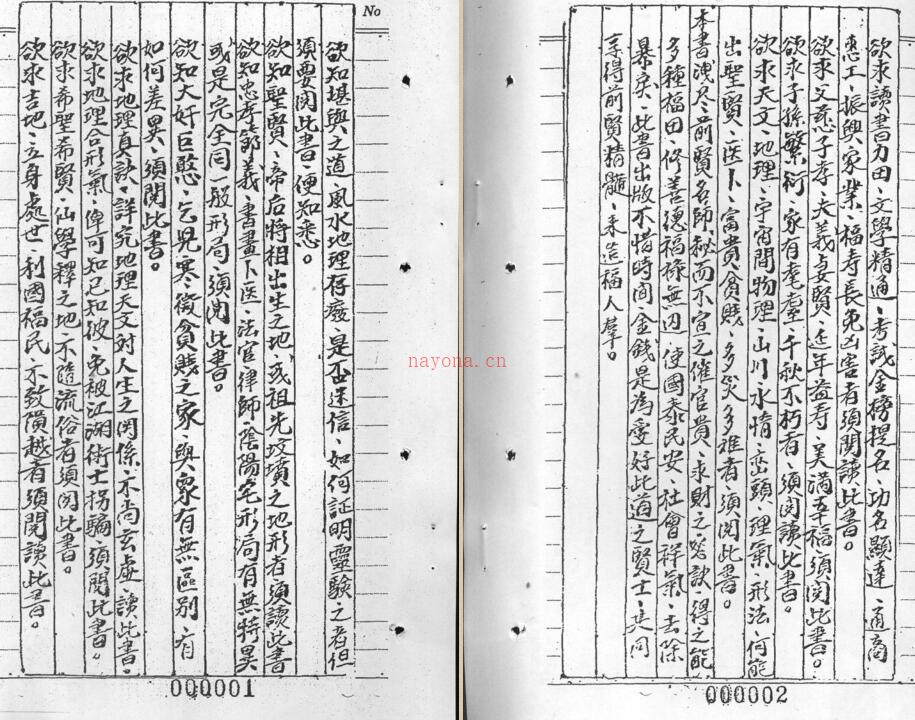 No
欲知堪輿之道、風水地理存廢、是否迷信、如何証明靈驗之者但
須要閱此書、便知悉。
欲知聖賢、帝后將相出生之地、或祖先坟墳之地形者須讀此書
欲知忠孝節義、書畫卜医、法官律師、陰陽宅形局有無特異
或是完全同一般形局、須閱此書。
欲知大奸巨憨、乞兒、寒微貧賤之家、與眾有無區别、有
如何差異、須閱此書。
欲求地理真訣、詳究地理天文对人生之関係、不尚玄虛、讀此書。
欲求地理合形氣、俾可知己知彼、免被江湖術士拐騙、須閱此書。
欲求希聖希賢、仙學釋之地、不隨流俗者須閱此書。
欲求吉地、立身處世、利國福民、不致隕越者須閱讀此書。
000001
欲求讀書力田、文學精通、考試金榜提名、功名顯達、通商
惠工、振興家業、福寿長免凶害者須閱讀此書。
欲求父慈子孝、夫義妻賢、延年益寿、美滿五福、須閱此書。
欲求子孫繁衍、家有耄耋、千秋不朽者、須閱讀此書。
欲求天文、地理、宇宙間物理、山川水情、巒頭、理氣、形法、何能
出聖賢、医卜、富貴貧賤、多災多难者須閱此書。
本書洩尽前賢名師秘而不宣之催官貴、求財之密訣、得之能
多種福田、修善德福祿無边、使國泰民安、社會祥氣、去除
暴戾、此書出版不惜時间金錢是為愛好此道之賢士、共同
享得前賢精髓、来造福人羣。
000002
nayona.cn